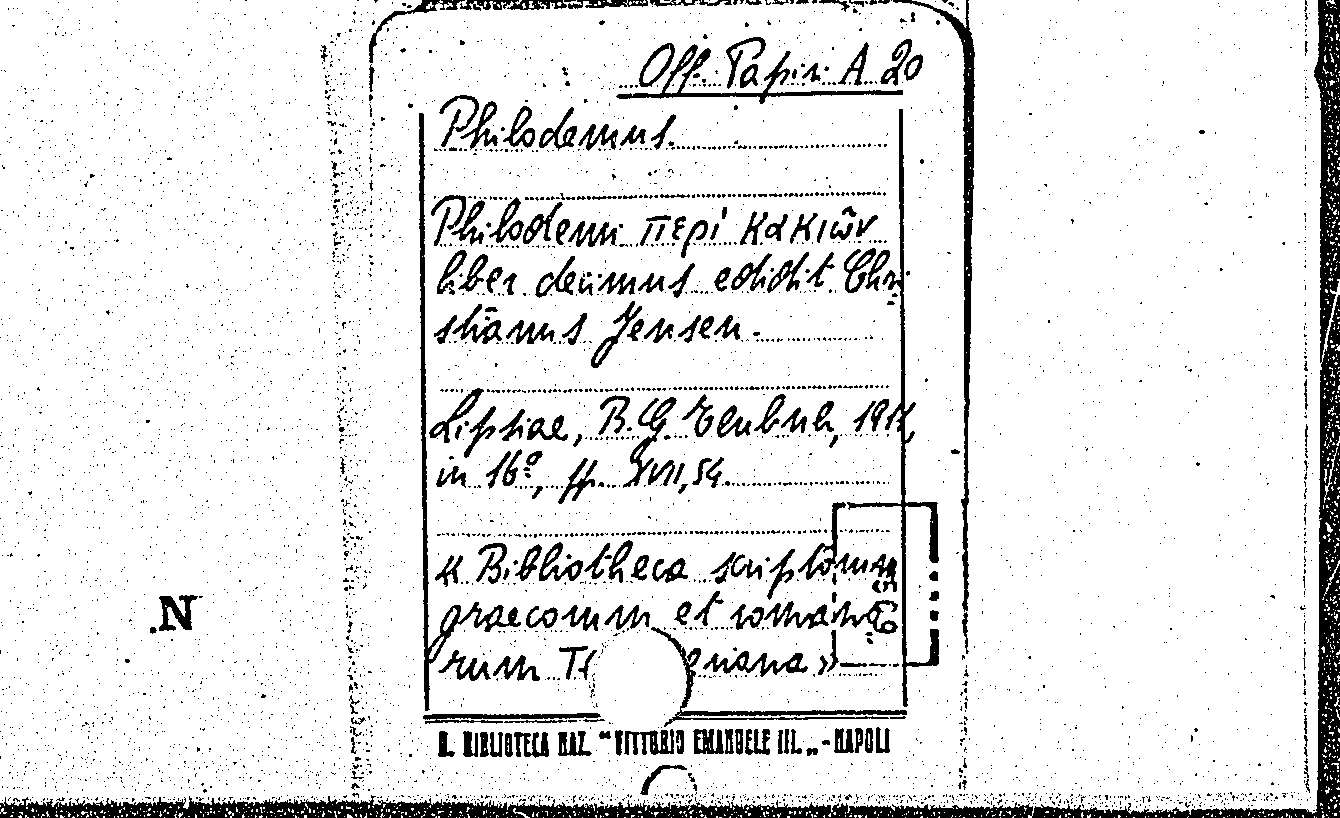 Off. Papiri A 20
Philodemus.
Philodemi περὶ κακιῶν
liber decimus edidit Chri-
stianus Jensen.
Lipsiae, B. G. Teubner, 1911,
in 16º, pp. XVII, 54.
« Bibliotheca scriptorum
graecorum et romano-
rum Te eriana »
R. BIBLIOTECA NAZ. "VITTORIO EMANUELE III„ - NAPOLI
.N